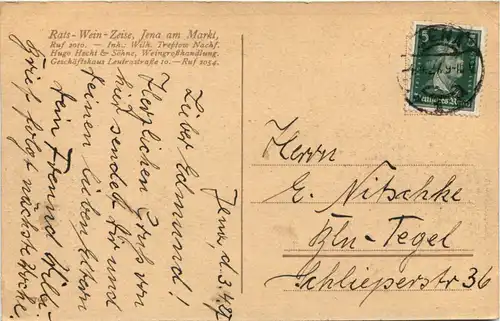 Rats-Wein-Zeise, Jena am Markt,
Ruf 2010. — Inh.: Wilh. Treßtow Nachf.
Hugo Hecht & Söhne, Weingroßhandlung.
Geschäftshaus Leutrastraße 10. — Ruf 2054.
Jena, d. 3.4.27
Lieber Edmund!
Herzlichen Gruß von
hier sendet Dir und
deinen lieben Eltern
Dein Freund Willi.
Brief folgt nächste Woche!
JENA
Deutsches Reich
Herrn
E. Nitschke
Bln-Tegel
Schlieperstr 36